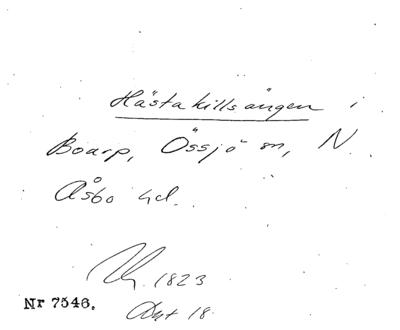 Hästakillsängen i
Boarp, Össjö sn, N.
Åsbo hd.
1823
Nr 7546.
Akt 18